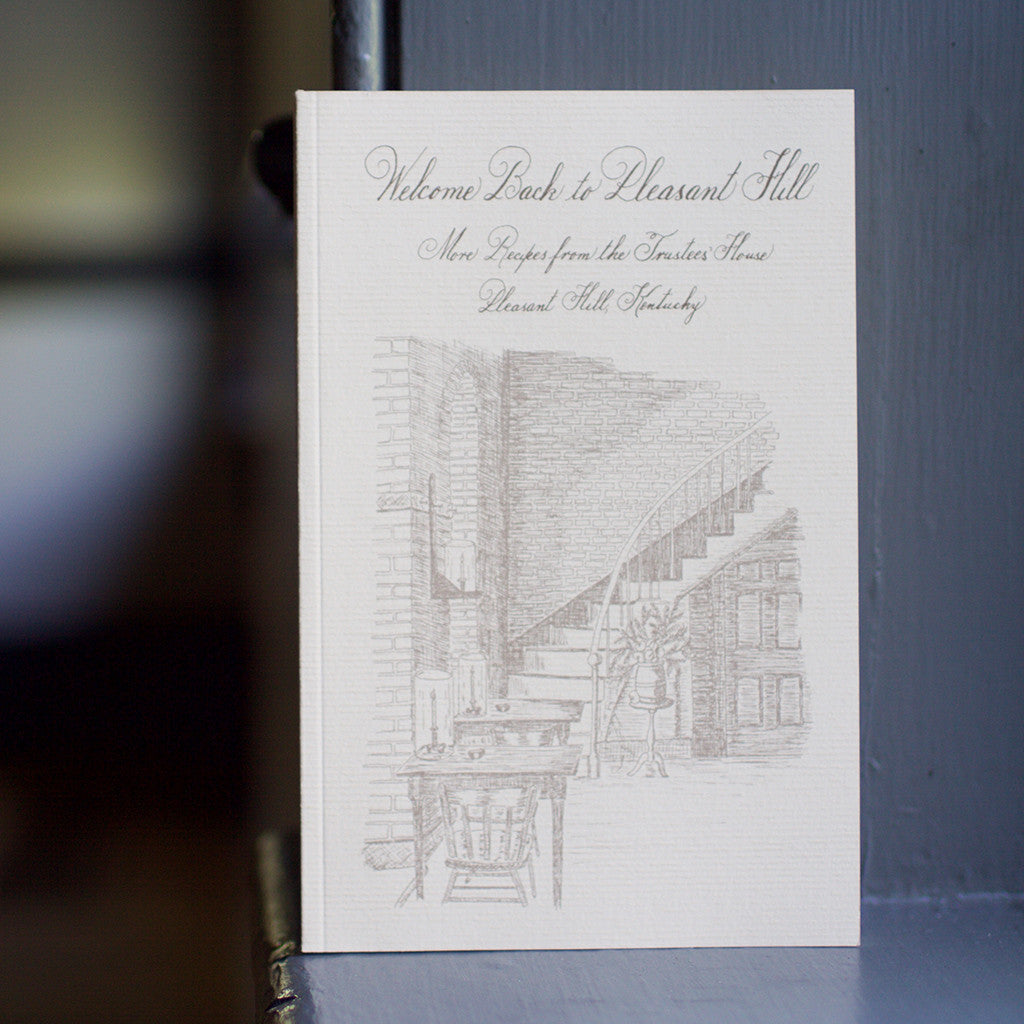 Welcome Back to Pleasant Hill
More Recipes from the Trustees' House
Pleasant Hill, Kentucky